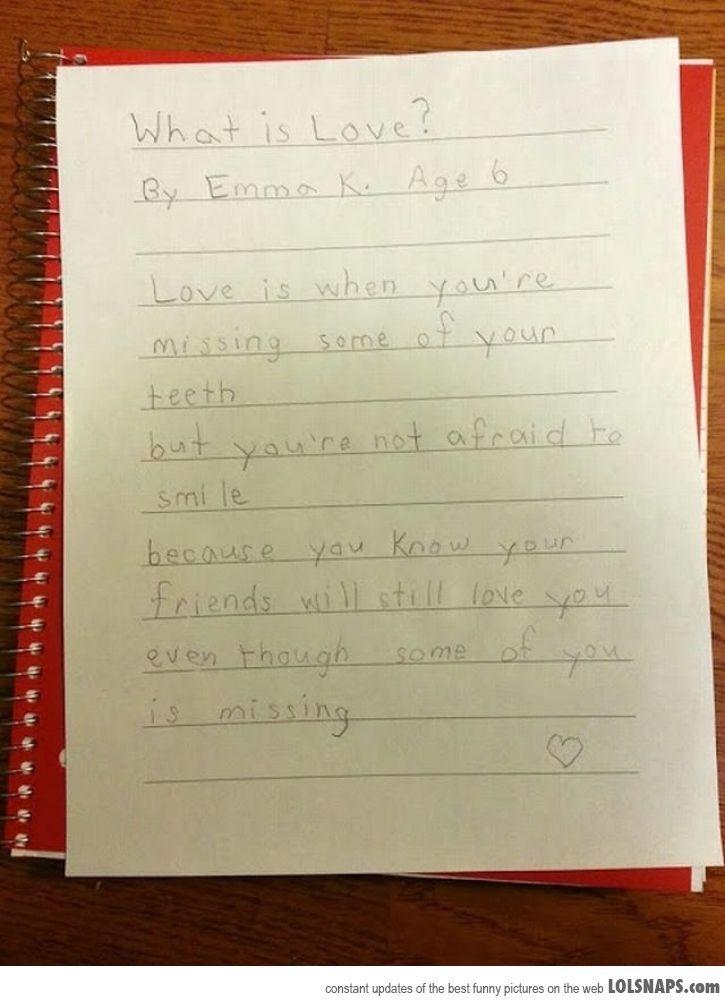 What is Love?
By Emma K. Age 6
Love is when you're
missing some of your
teeth
but you're not afraid to
smile
because you know your
friends will still love you
even though some of you
is missing
constant updates of the best funny pictures on the web LOLSNAPS.com